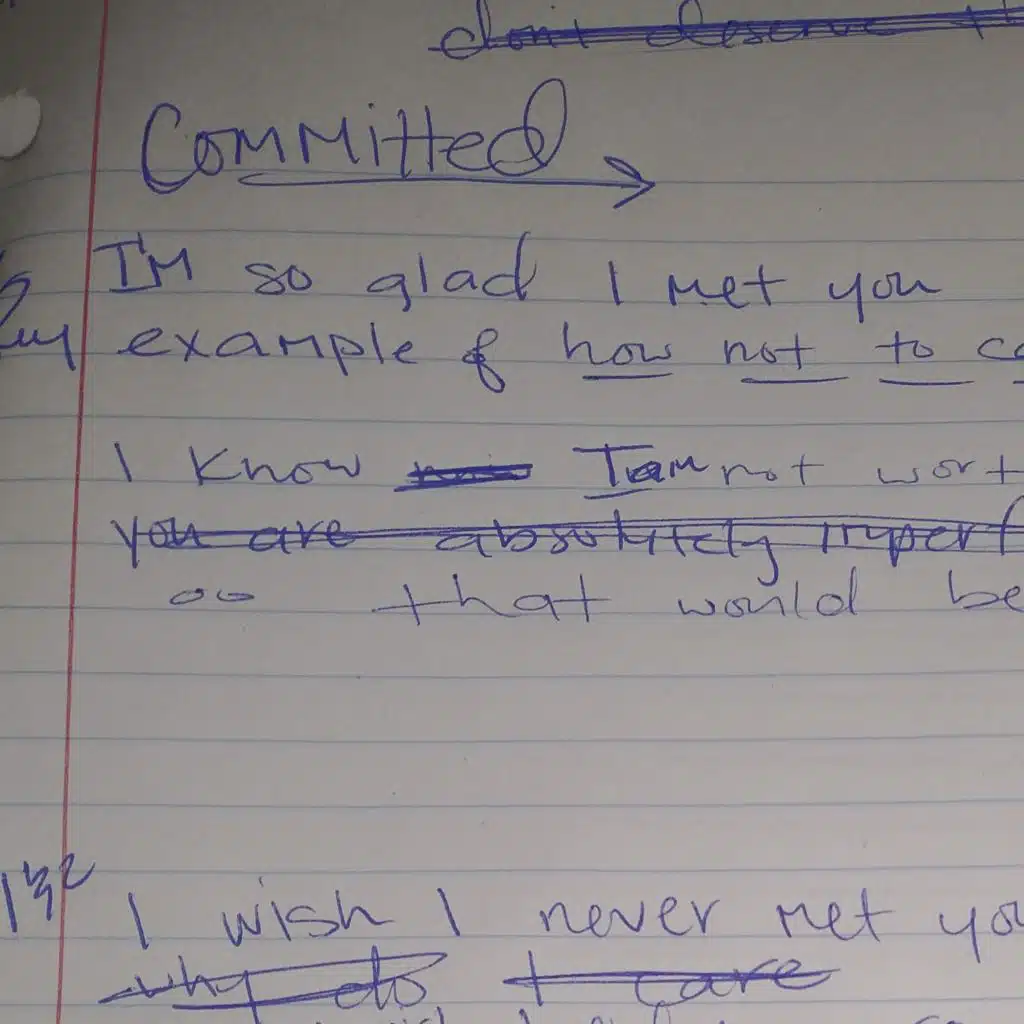 don't deserve
Committed
I'M so glad I met you
example of how not to
I know I am not
you are absolutely
that would be
I wish I never met
why do I care